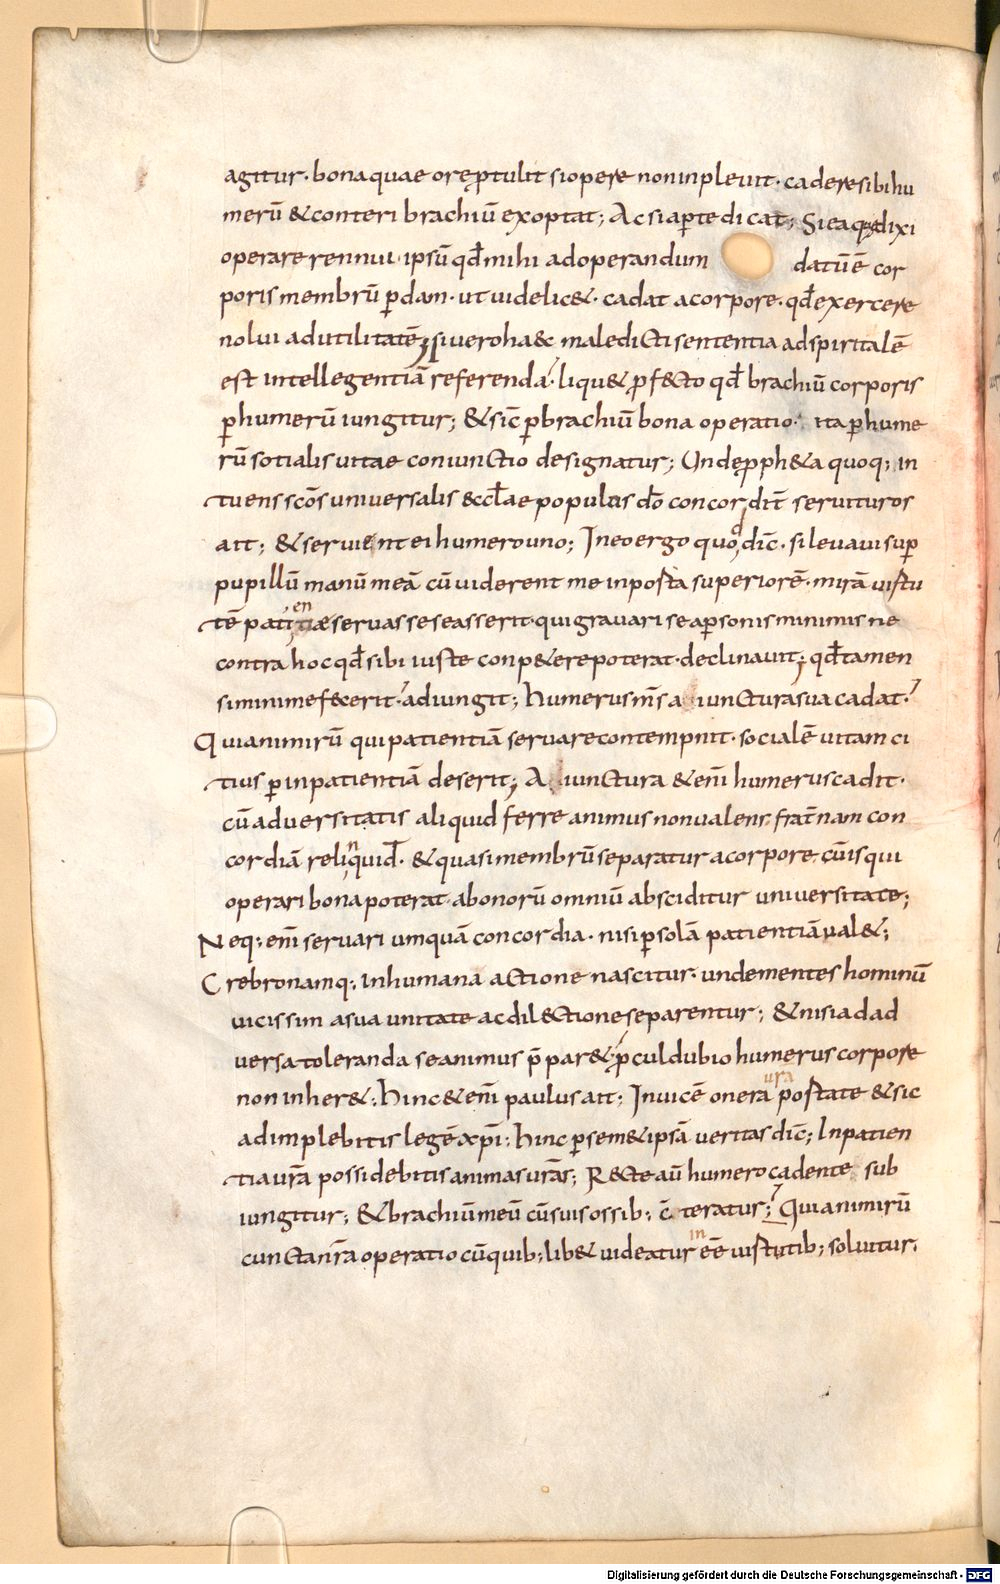 agitur· bona quae ore ꝑtulit si opere non inpleuit· cadere sibi hu
merū & conteri brachiū exoptat; Ac si aꝑte dicat; Si ea quę dixi
operare rennui· ipsū qđ mihi ad operandum datū ē cor
poris membrū ꝑdam· ut uidelic&· cadat a corpore· qđ exercere
nolui ad utilitatē; si uero ha&c maledicti sententia ad spiritalē
est intellegentiā referenda· liqu& ꝓf&cto qđ brachiū corporis
ꝑ humerū iungitur; & sic̄ ꝑ brachiū bona operatio· ita ꝑ hume
rū sotialis uitae coniunctio designatur; Unde ꝓph&a quoq; in
tuens sc̄os uniuersalis &ccl̄ae populus dō concordit̄ seruituros
ait; & seruient ei humero uno; In eo ergo quod dic̄· si leuaui suꝑ
pupillū manū meā cū uiderent me in porta superiorē· mirā uirtu
tē patientiae seruasse se asserit· qui grauari se a ꝑsonis minimis ne
contra hoc qđ sibi iuste conp&ere poterat· declinauit; qđ tamen
si minime fecerit· adiungit; humerus m̄s a iunctura sua cadat·
Quia nimirū qui patientiā seruare contempnit· socialē uitam ci
tius ꝑ inpatientiā deserit; A iunctura &eni̅ humerus cadit·
cū aduersitatis aliquid ferre animus non ualens frat̄nam con
cordiā relinquid· & quasi membrū separatur a corpore· cū is qui
operari bona poterat· a bonorū omniū absciditur uniuersitate;
Neq; eni̅ seruari umquā concordia· nisi ꝑ solā patientiā ual&;
Crebro namq; in humana actione nascitur· unde mentes hominū
uicissim a sua unitate ac dil&ctione separentur; & nisi ad ad
uersa toleranda se animus p̄par& ꝓcul dubio humerus corpore
non inher&; hinc &eni̅ paulus ait; Inuicē onera ura portate & sic
adimplebitis legē xp̄i; hinc ꝑ sem&ipsā ueritas dic̄; In patien
tia ur̄a possidebitis animas ur̄as; R&cte aū humero cadente sub
iungitur; & brachiū meū cū suis ossib; c̄teratur; Quia nimirū
cuncta nr̄a operatio cū quib;lib& uideatur in ee̅ uirtutib; soluitur·
Digitalisierung gefördert durch die Deutsche Forschungsgemeinschaft - DFG